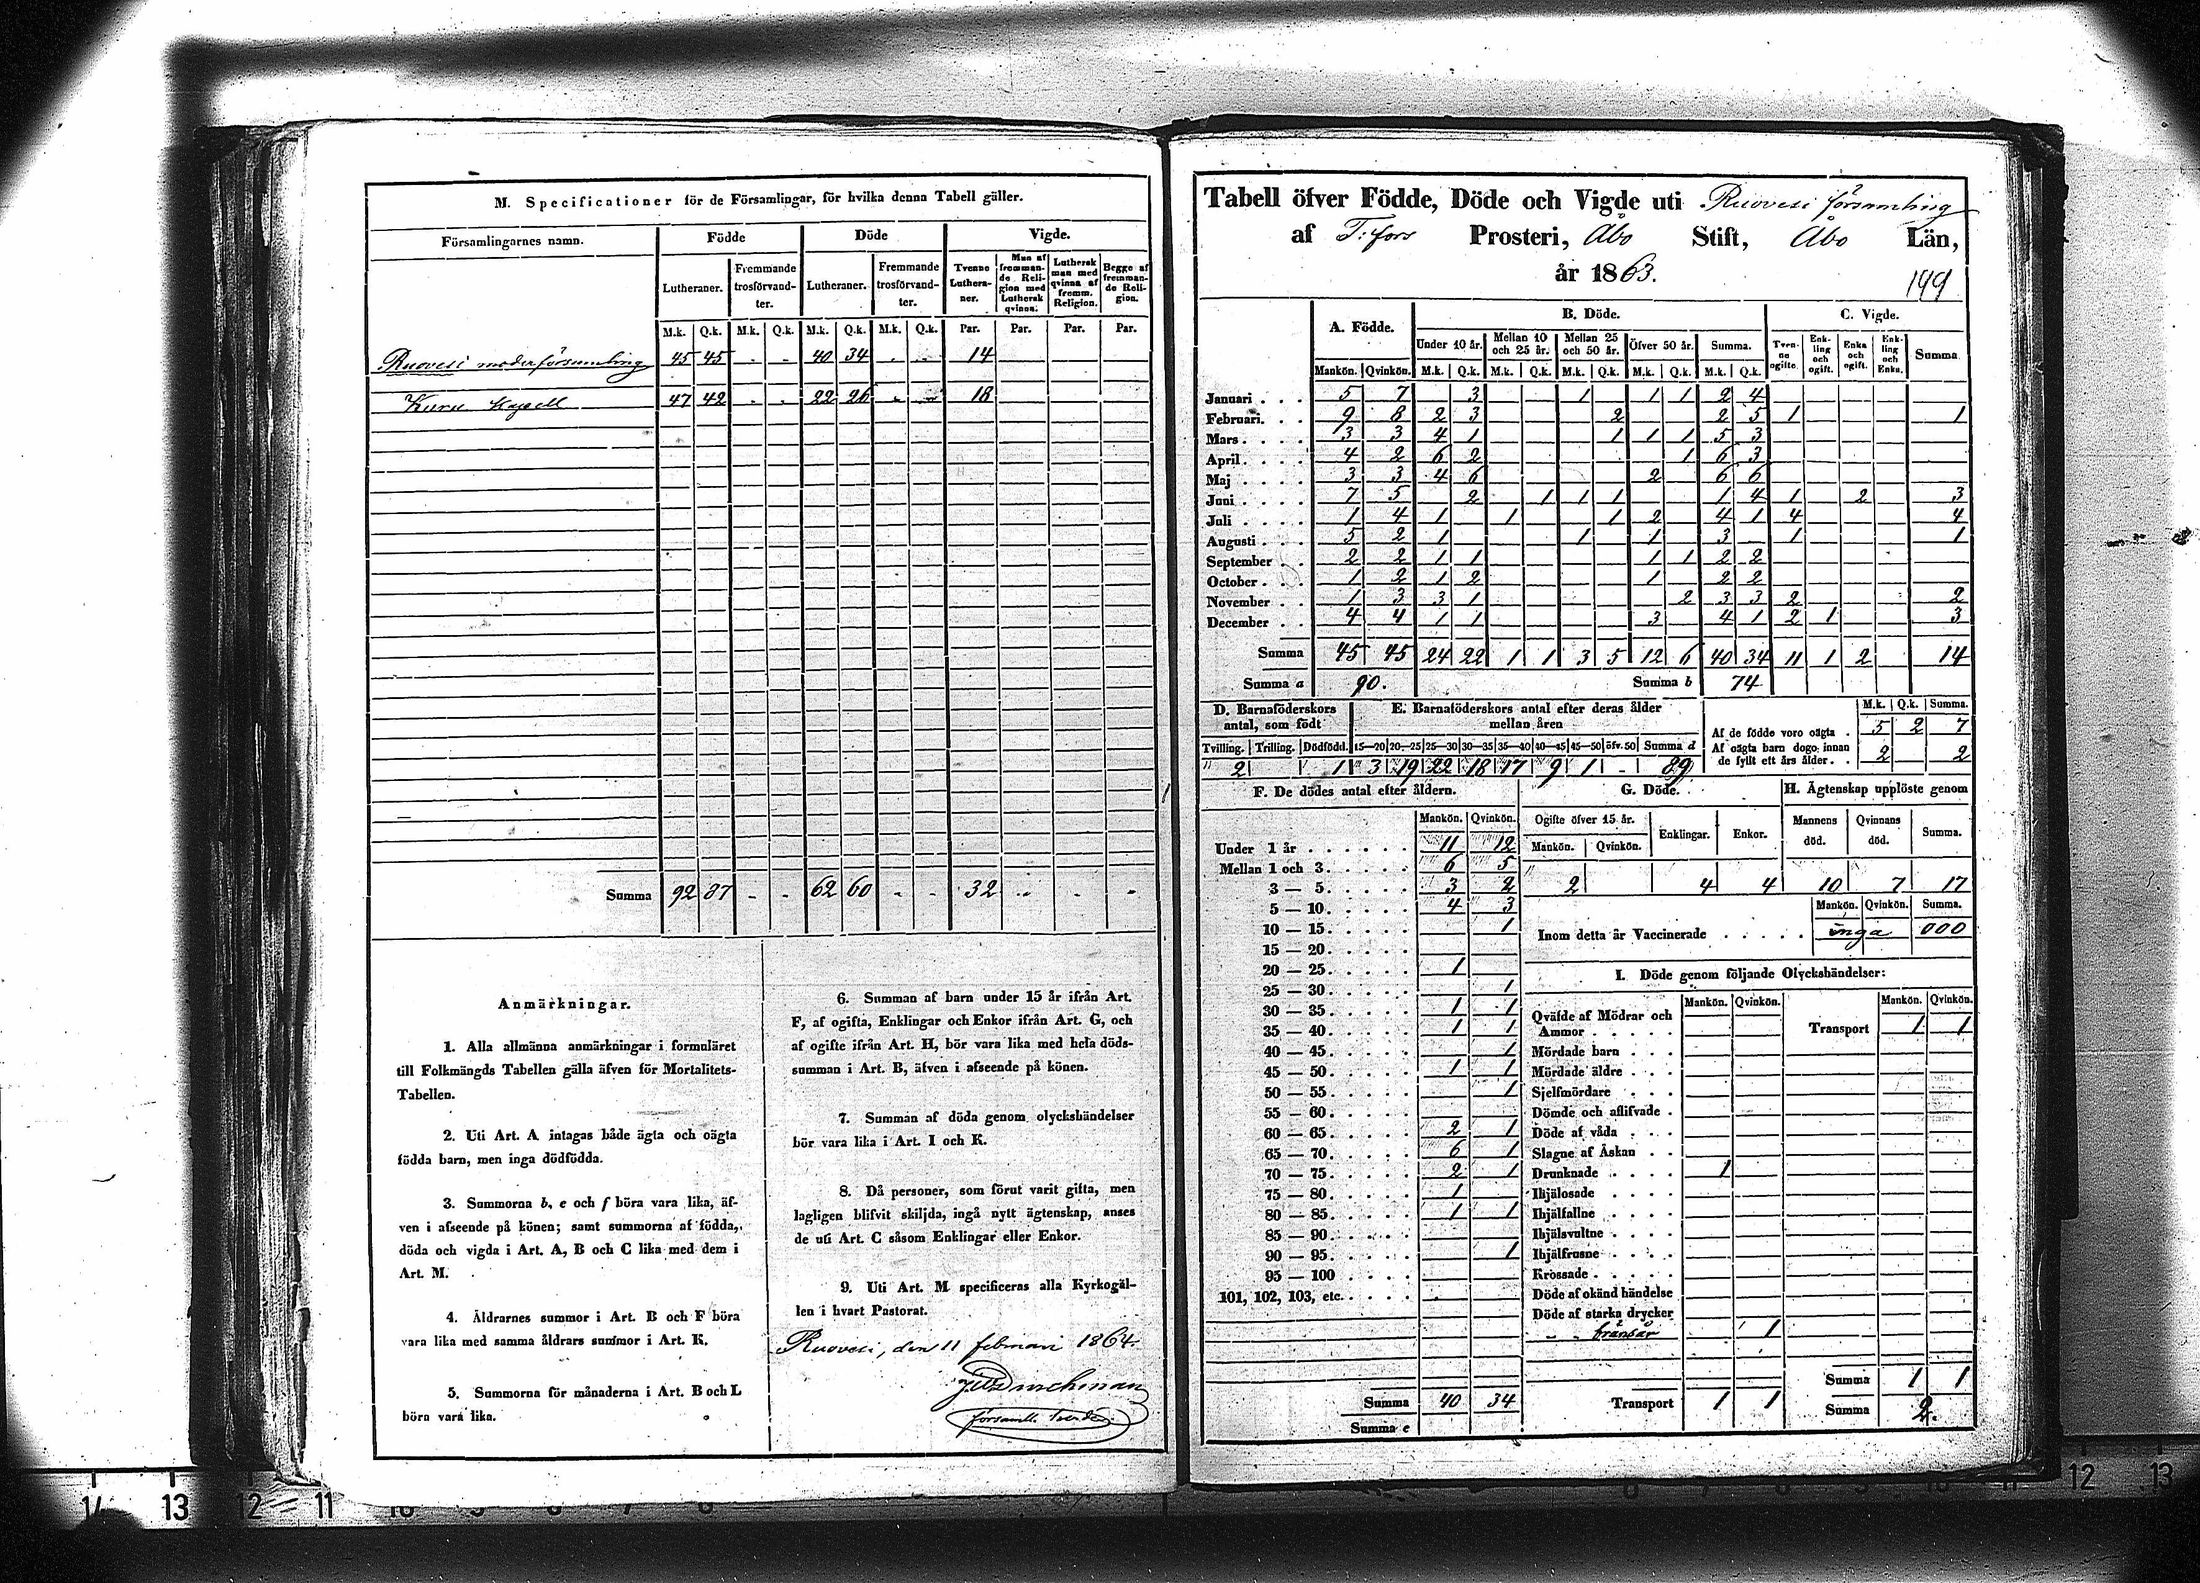 M. Specificationer för de Församlingar, för hvilka denna Tabell gäller.
Församlingarnes namn. Födde Döde Vigde.
Lutheraner. Fremmande trosförvandter. Lutheraner. Fremmande trosförvandter. Tvenne Lutheraner. Man af fremmande Religion med Luthersk qvinna. Luthersk man med qvinna af fremm. Religion. Begge af fremmande Religion.
M.k. Q.k. M.k. Q.k. M.k. Q.k. M.k. Q.k. Par. Par. Par. Par.
Ruovesi moderförsamling 45 45 - - 40 34 - - 14
Kuru Kapell 47 42 - - 22 26 - - 18
Summa 92 87 - - 62 60 - - 32 - - -
Anmärkningar.
1. Alla allmänna anmärkningar i formuläret
till Folkmängds Tabellen gälla äfven för Mortalitets-
Tabellen.
2. Uti Art. A intagas både ägta och oägta
födda barn, men inga dödfödda.
3. Summorna b, e och f böra vara lika, äf-
ven i afseende på könen; samt summorna af födda,
döda och vigda i Art. A, B och C lika med dem i
Art. M.
4. Åldrarnes summor i Art. B och F böra
vara lika med samma åldrars summor i Art. K.
5. Summorna för månaderna i Art. B och L
böra vara lika.
6. Summan af barn under 15 år ifrån Art.
F, af ogifta, Enklingar och Enkor ifrån Art. G, och
af ogifte ifrån Art. H, bör vara lika med hela döds-
summan i Art. B, äfven i afseende på könen.
7. Summan af döda genom olyckshändelser
bör vara lika i Art. I och K.
8. Då personer, som förut varit gifta, men
lagligen blifvit skiljda, ingå nytt ägtenskap, anses
de uti Art. C såsom Enklingar eller Enkor.
9. Uti Art. M specificeras alla Kyrkogäl-
len i hvart Pastorat.
Ruovesi, den 11 februari 1864.
Tabell öfver Födde, Döde och Vigde uti Ruovesi församling
af T:fors Prosteri, Åbo Stift, Åbo Län,
år 1863.
199
A. Födde. B. Döde. C. Vigde.
Under 10 år. Mellan 10 och 25 år. Mellan 25 och 50 år. Öfver 50 år. Summa. Tvenne ogifte. Enkling och ogift. Enka och ogift. Enkling och Enka. Summa
Mankön. Qvinkön. M.k. Q.k. M.k. Q.k. M.k. Q.k. M.k. Q.k. M.k. Q.k.
Januari 5 7 3 1 1 1 2 4
Februari 9 8 2 3 2 2 5 1 1
Mars 3 3 4 1 1 1 1 5 3
April 4 2 6 2 1 6 3
Maj 3 3 4 6 2 6 6
Juni 7 5 2 1 1 1 1 4 1 2 3
Juli 1 4 1 1 1 2 4 1 4 4
Augusti 5 2 1 1 1 3 1 1
September 2 2 1 1 1 1 2 2
October 1 2 1 2 1 2 2
November 1 3 3 1 2 3 3 2 2
December 4 4 1 1 3 4 1 2 1 3
Summa 45 45 24 22 1 1 3 5 12 6 40 34 11 1 2 14
Summa a 90. Summa b 74
D. Barnaföderskors antal, som födt
Tvilling. Trilling. Dödfödd.
2 1
E. Barnaföderskors antal efter deras ålder mellan åren
15—20 20—25 25—30 30—35 35—40 40—45 45—50 öfv. 50 Summa d
3 19 22 18 17 9 1 - 89
M.k. Q.k. Summa.
Af de födde voro oägta 5 2 7
Af oägta barn dogo innan de fyllt ett års ålder 2 2
F. De dödes antal efter åldern.
Mankön. Qvinkön.
Under 1 år 11 12
Mellan 1 och 3 6 5
3 — 5 3 2
5 — 10 4 3
10 — 15 1
15 — 20
20 — 25 1
25 — 30 1
30 — 35 1 1
35 — 40 1 1
40 — 45 1
45 — 50 1 1
50 — 55 1
55 — 60
60 — 65 2 1
65 — 70 6 1
70 — 75 2 1
75 — 80 1
80 — 85 1 1
85 — 90
90 — 95 1
95 — 100
101, 102, 103, etc.
Summa 40 34
Summa e
G. Döde.
Ogifte öfver 15 år. Enklingar. Enkor.
Mankön. Qvinkön.
2 4 4
H. Ägtenskap upplöste genom
Mannens död. Qvinnans död. Summa.
10 7 17
Mankön. Qvinkön. Summa.
Inom detta år Vaccinerade inga 000
I. Döde genom följande Olyckshändelser:
Mankön. Qvinkön. Mankön. Qvinkön.
Qväfde af Mödrar och Ammor Transport 1 1
Mördade barn
Mördade äldre
Sjelfmördare
Dömde och aflifvade
Döde af våda
Slagne af Åskan
Drunknade 1
Ihjälosade
Ihjälfallne
Ihjälsvultne
Ihjälfrusne
Krossade
Döde af okänd händelse
Döde af starka drycker
1
Transport 1 1
Summa 1 1
Summa 2.
14 13 12 11
12 13